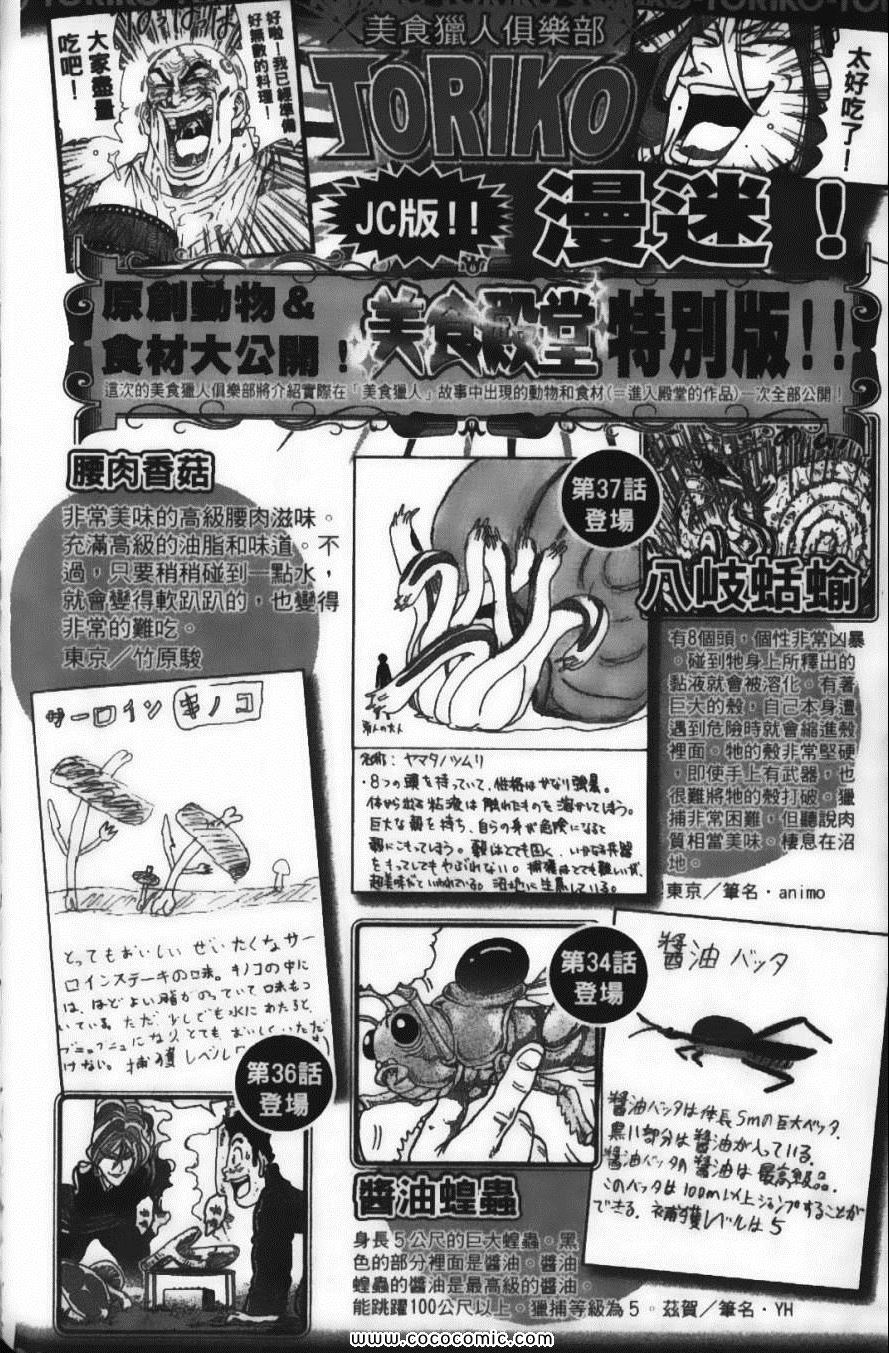 TORIKO
好啦！我已經準備
好無數的料理！
大家盡量
吃吧！
美食獵人俱樂部
TORIKO
太好吃了！
JC版!!
漫迷！
原創動物&
食材大公開！
美食殿堂 特別版!!
這次的美食獵人俱樂部將介紹實際在「美食獵人」故事中出現的動物和食材(＝進入殿堂的作品)一次全部公開！
腰肉香菇
非常美味的高級腰肉滋味。
充滿高級的油脂和味道。不
過，只要稍稍碰到一點水，
就會變得軟趴趴的，也變得
非常的難吃。
東京／竹原駿
サーロインキノコ
とってもおいしい ぜいたくなサー
ロインステーキの味。キノコの中に
は、ほどよい脂がのっていて味もつ
いている。ただ、少しでも水にあたると、
捕獲レベル「
第36話
登場
第37話
登場
八岐蛞蝓
有8個頭，個性非常凶暴
。碰到牠身上所釋出的
黏液就會被溶化。有著
巨大的殼，自己本身遭
遇到危險時就會縮進殼
裡面。牠的殼非常堅硬
，即使手上有武器，也
很難將牠的殼打破。獵
捕非常困難，但聽說肉
質相當美味。棲息在沼
地。
東京／筆名・animo
名称：ヤマタノツムリ
・8つの頭を持っていて、性格はかなり強暴。
体から出る粘液は触れたものを溶かしてしまう。
巨大な殻を持ち、自らの身が危険になると
殻にこもってしまう。殻はとても固く、いかなる兵器
をもってしてもやぶれない。捕獲はとても難しいが、
超美味だといわれている。沼地に生息している。
第34話
登場
醤油バッタ
醤油バッタは体長5mの巨大バッタ。
黒い部分は醤油が入っている。
醤油バッタの醤油は最高級品。
このバッタは100m以上ジャンプすることが
できる。補獲レベルは5
醬油蝗蟲
身長5公尺的巨大蝗蟲。黑
色的部分裡面是醬油。醬油
蝗蟲的醬油是最高級的醬油。
能跳躍100公尺以上。獵捕等級為5。茲賀／筆名・YH
www.cococomic.com